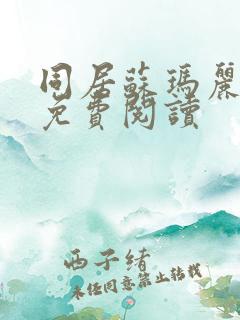 同居蘇瑪麗
免費閱讀
西子緒
未经同意禁止转载